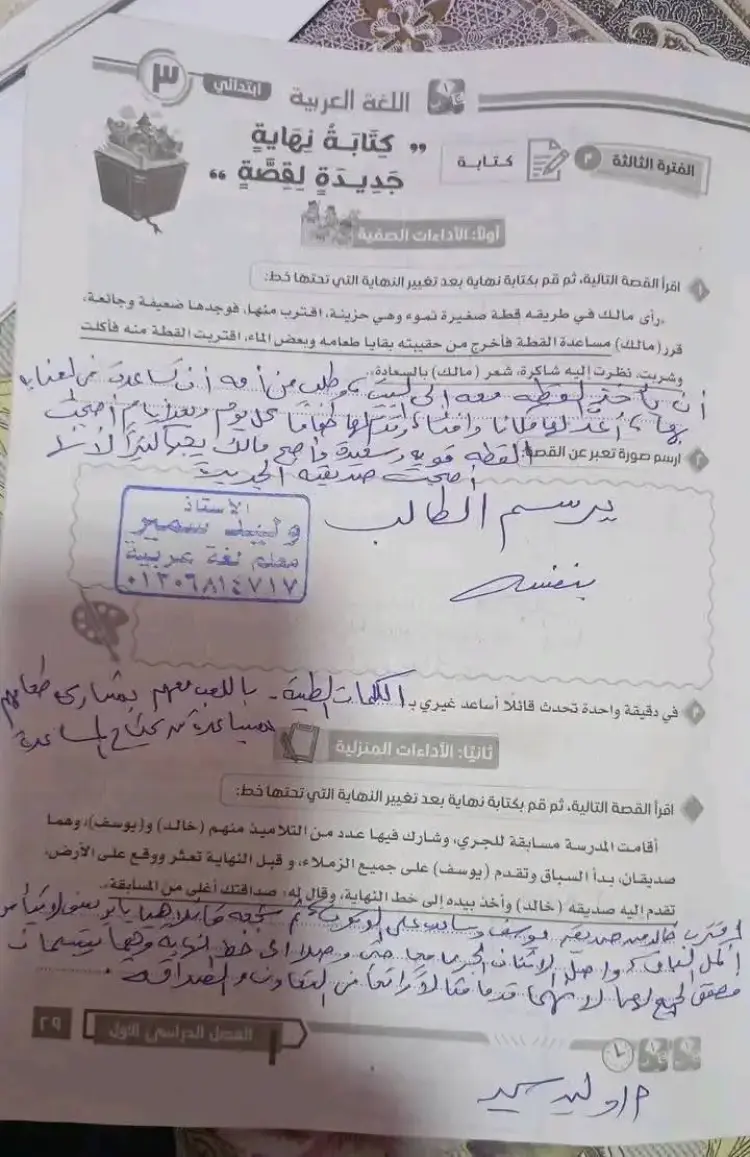 ٣ ابتدائي
اللغة العربية
الفترة الثالثة ٣ كتابة
" كِتَابَةُ نِهَايَةٍ
جَدِيدَةٍ لِقِصَّةٍ "
أولاً: الأداءات الصفية
١ اقرأ القصة التالية، ثم قم بكتابة نهاية بعد تغيير النهاية التي تحتها خط:
«رأى مالك في طريقه قطة صغيرة تموء وهي حزينة، اقترب منها، فوجدها ضعيفة وجائعة،
قرر (مالك) مساعدة القطة فأخرج من حقيبته بقايا طعامه وبعض الماء، اقتربت القطة منه فأكلت
وشربت، نظرت إليه شاكرة، شعر (مالك) بالسعادة».
أن يأخذ القطه معه إلى البيت، وطلب من أمه أن تساعده في العناية
بها، أعد لها مكانا دافئا، وقدم لها طعاما كل يوم وبعد أيام أصبحت
القطه قويه وسعيدة وأصبح مالك يحبها كثيرًا لأنها
أصبحت صديقته الجديدة
٢ ارسم صورة تعبر عن القصة:
يرسم الطالب
بنفسه
الأستاذ
وليد سمير
معلم لغة عربية
٠١٢٠٦٨١٤٧١٧
٣ في دقيقة واحدة تحدث قائلًا أساعد غيري بـ الكلمات الطيبة - باللعب معهم بمشاركة طعامهم
مساعدة من يحتاج المساعدة
ثانيًا: الأداءات المنزلية
اقرأ القصة التالية، ثم قم بكتابة نهاية بعد تغيير النهاية التي تحتها خط:
أقامت المدرسة مسابقة للجري، وشارك فيها عدد من التلاميذ منهم (خالد) و(يوسف)، وهما
صديقان، بدأ السباق وتقدم (يوسف) على جميع الزملاء، و قبل النهاية تعثر ووقع على الأرض،
تقدم إليه صديقه (خالد) وأخذ بيده إلى خط النهاية، وقال له: صداقتك أغلى من المسابقة».
اقترب خالد من صديقه يوسف وساعده على الوقوف ثم شجعه قائلا هيا يا يوسف لا تيأس
أكمل السباق، واصل الاثنان الجري معا حتى وصلا إلى خط النهاية وهما يبتسمان
فصفق الجميع لهما لأنهما قدما مثالا رائعا في التعاون والصداقة.
الفصل الدراسي الأول
٢٩
أ/ وليد سمير